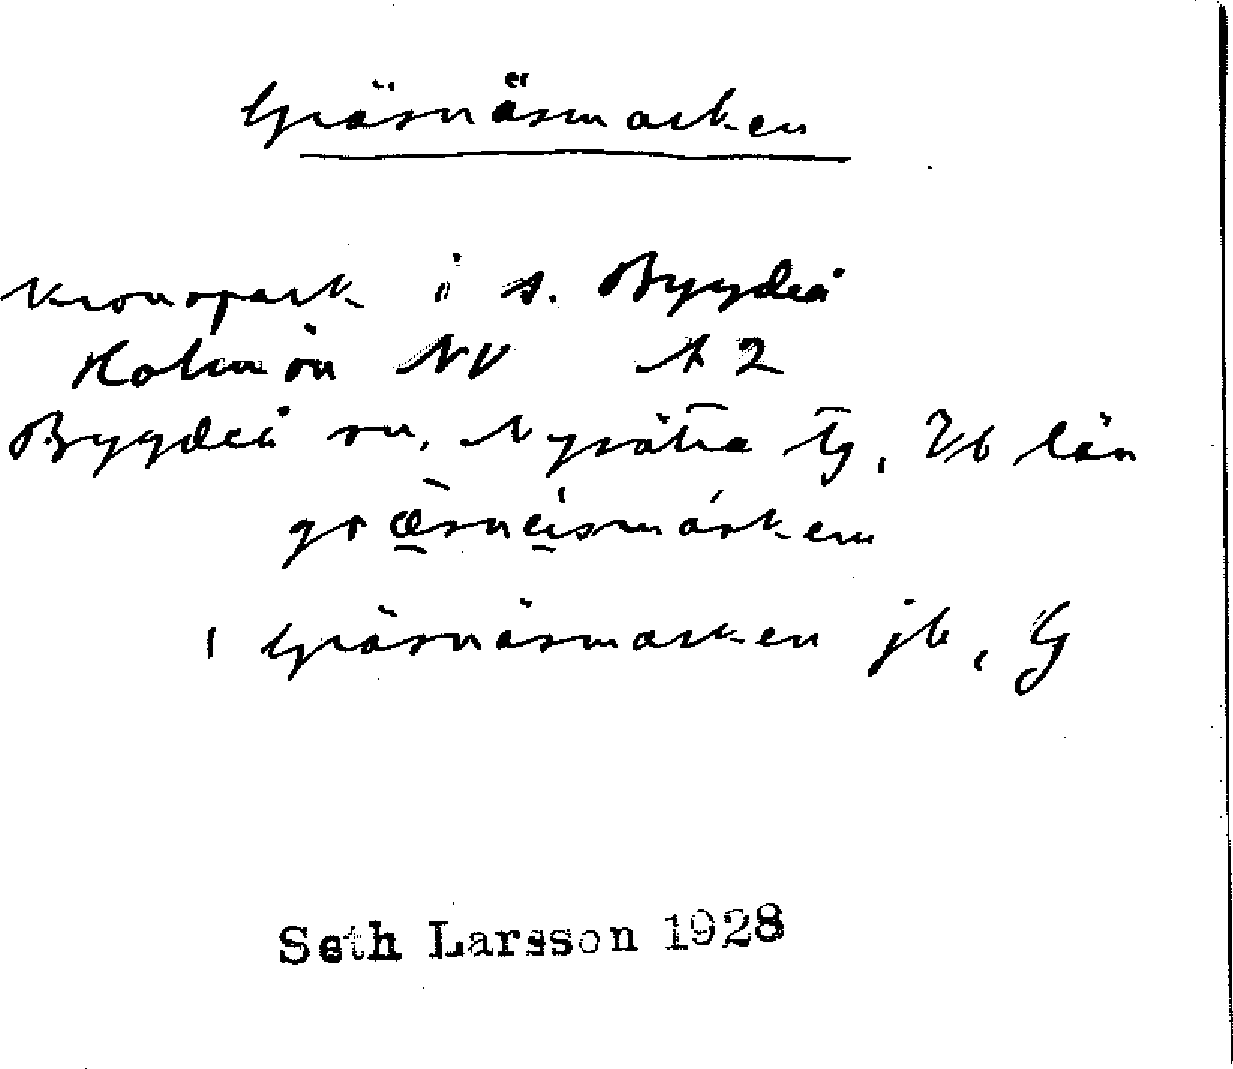 Gräsnäsmarken
Kronopark i s. Bygdeå
Holmön NV A 2
Bygdeå sn, Nysätra tg, Vb län
græsnäsmárken
1 Gräsnäsmarken jb, G
Seth Larsson 1928